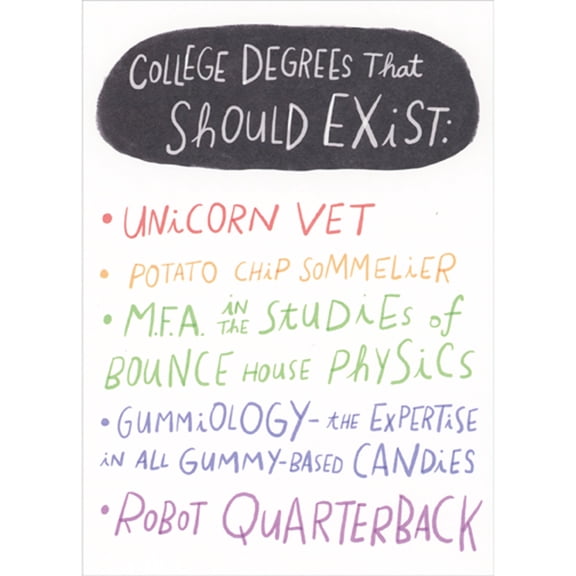 COLLEGE DEGREES That
ShOULD EXiST:
• UNiCORN VET
• POTATO CHiP SOMMELiER
• M.F.A. iN THE StUDiEs of
BOUNCE HOUSE PhYSiCS
• GUMMiOLOGY- tHE EXPERTiSE
iN ALL GUMMY-BASED CANDiES
• ROBOT QUARTERBACK